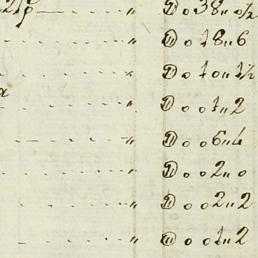 " Ⓓ o 38 " 0½
" Ⓓ o 18 " 6
" Ⓓ o 10 " 1½
" Ⓓ o 01 " 2
" Ⓓ o 06 " 4
" Ⓓ o 02 " 0
" Ⓓ o 02 " 2
" Ⓓ o 01 " 2